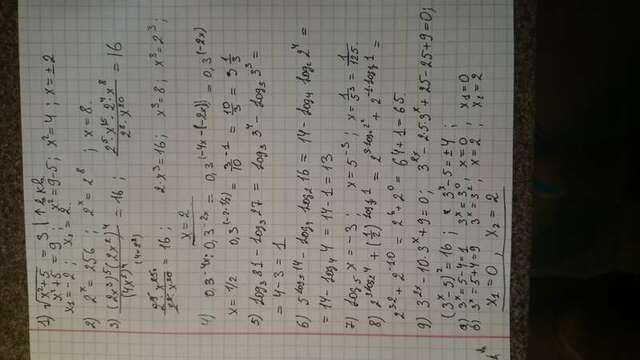 1) √x²+5 = 3 | ↑2 кв
x²+5 = 9 ; x² = 9-5; x² = 4 ; x = ±2
x₁ = -2 ; x₂ = 2.
2) 2ˣ = 256 ; 2ˣ = 2⁸ ; x = 8.
3) (2x³)⁵(2x²)⁴/(4x²)⁴ = 16 ; 2⁵·x¹⁵·2⁴·x⁸/2⁸·x²⁰ = 16
(4=2²)
2⁹·x²³/2⁸·x²⁰ = 16 ; 2·x³ = 16; x³ = 8 ; x³ = 2³ ;
x = 2
4) 0,3⁻⁴ˣ : 0,3⁻²ˣ = 0,3^(-4x-(-2x)) = 0,3^(-2x)
x = 1/2 0,3^(-2·½) = 3/10⁻¹ = 10/3 = 3 1/3
5) log₃ 81 - log₃ 27 = log₃ 3⁴ - log₃ 3³ =
= 4 - 3 = 1
6) 5^log₅14 - log₄ log₂ 16 = 14 - log₄ log₂ 2⁴ =
= 14 - log₄ 4 = 14 - 1 = 13
7) log₅ x = -3 ; x = 5⁻³ ; x = 1/5³ = 1/125.
8) 2^3log₂4 + (1/2)^log 1 = 2^3·log₂2² + 2^-1·log 1 =
2^3·2 + 2^-1·0 = 2⁶ + 2⁰ = 64 + 1 = 65
9) 3²ˣ - 10·3ˣ + 9 = 0; 3²ˣ - 2·5·3ˣ + 25 - 25 + 9 = 0;
(3ˣ - 5)² = 16 ; 3ˣ - 5 = ±4 ;
а) 3ˣ = 5-4 = 1 3ˣ = 3⁰, x = 0 , x₁ = 0
б) 3ˣ = 5+4 = 9 3ˣ = 3², x = 2 , x₂ = 2
x₁ = 0 , x₂ = 2